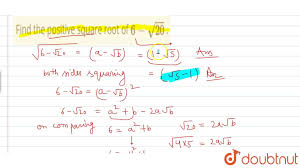 Find the positive square root of 6 - √20.
√6-√20 = (a-√b) = (1-√5) Ans
both sides squaring = (√5-1) Ans
6-√20 = (a-√b)²
6-√20 = a²+b-2a√b
on comparing 6 = a²+b √20 = 2a√b
√4×5 = 2a√b
doubtnut